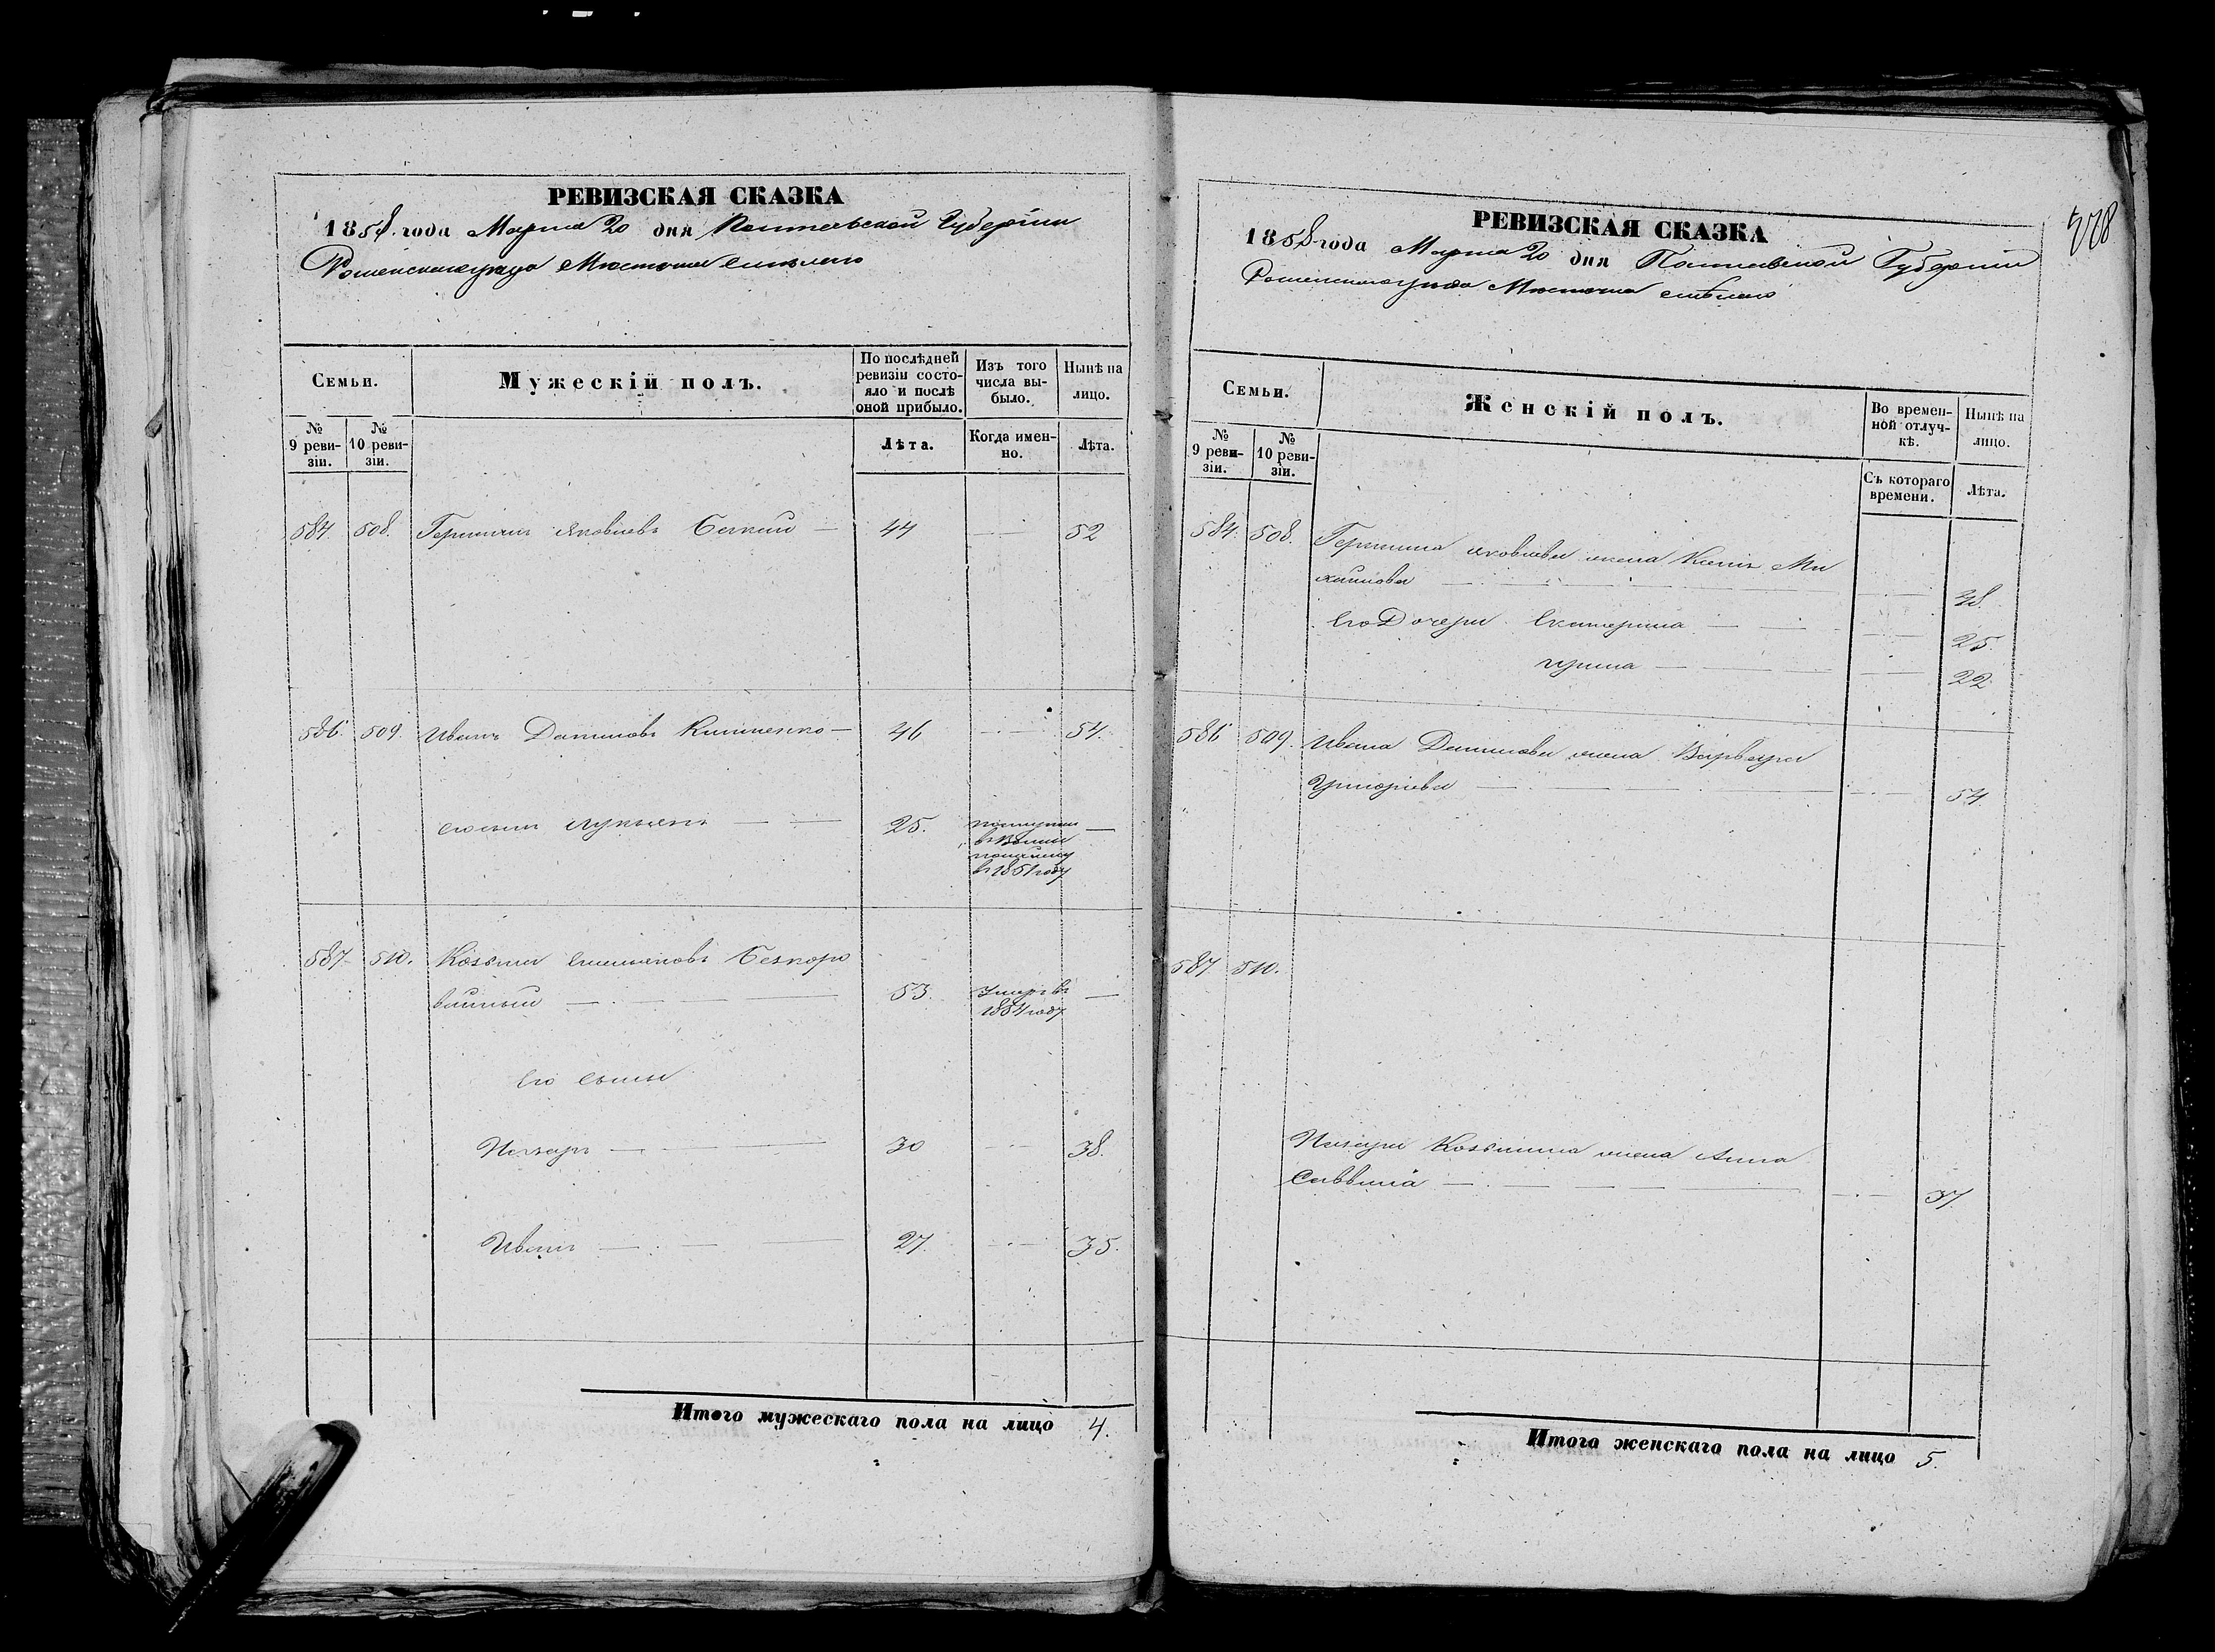 РЕВИЗСКАЯ СКАЗКА
1858 года Марта 20 дня Полтавской Губерніи
Роменскаго уезда Местечка Смелаго
Семьи.
Мужескій полъ.
По послѣдней ревизіи состояло и послѣ оной прибыло.
Изъ того числа выбыло.
Нынѣ на лицо.
№ 9 ревизіи.
№ 10 ревизіи.
Лѣта.
Когда именно.
Лѣта.
584. 508. Яковлевъ 44 52
586. 509. Иванъ Даниловъ 46 54.
его сынъ Лукьянъ 25.
в 1851 году
587. 510. Козьма Емельяновъ Безкоро
вайный 53. Умеръ въ
1854 году
Его сыны
Назаръ 30 38.
Иванъ 27. 35.
Итого мужескаго пола на лицо 4.
378
РЕВИЗСКАЯ СКАЗКА
1858 года Марта 20 дня Полтавской Губерніи
Роменскаго уезда Местечка Смелаго
Семьи.
Женскій полъ.
Во временной отлучкѣ.
Нынѣ на лицо.
№ 9 ревизіи.
№ 10 ревизіи.
Съ котораго времени.
Лѣта.
584. 508. Яковлева жена Ми
хайлова
его Дочери Екатерина 25.
22
586 509. Ивана Данилова жена Варвара
Григорьева 54
587 510.
Назара Козьмина жена Анна
Саввина 37.
Итого женскаго пола на лицо 5.